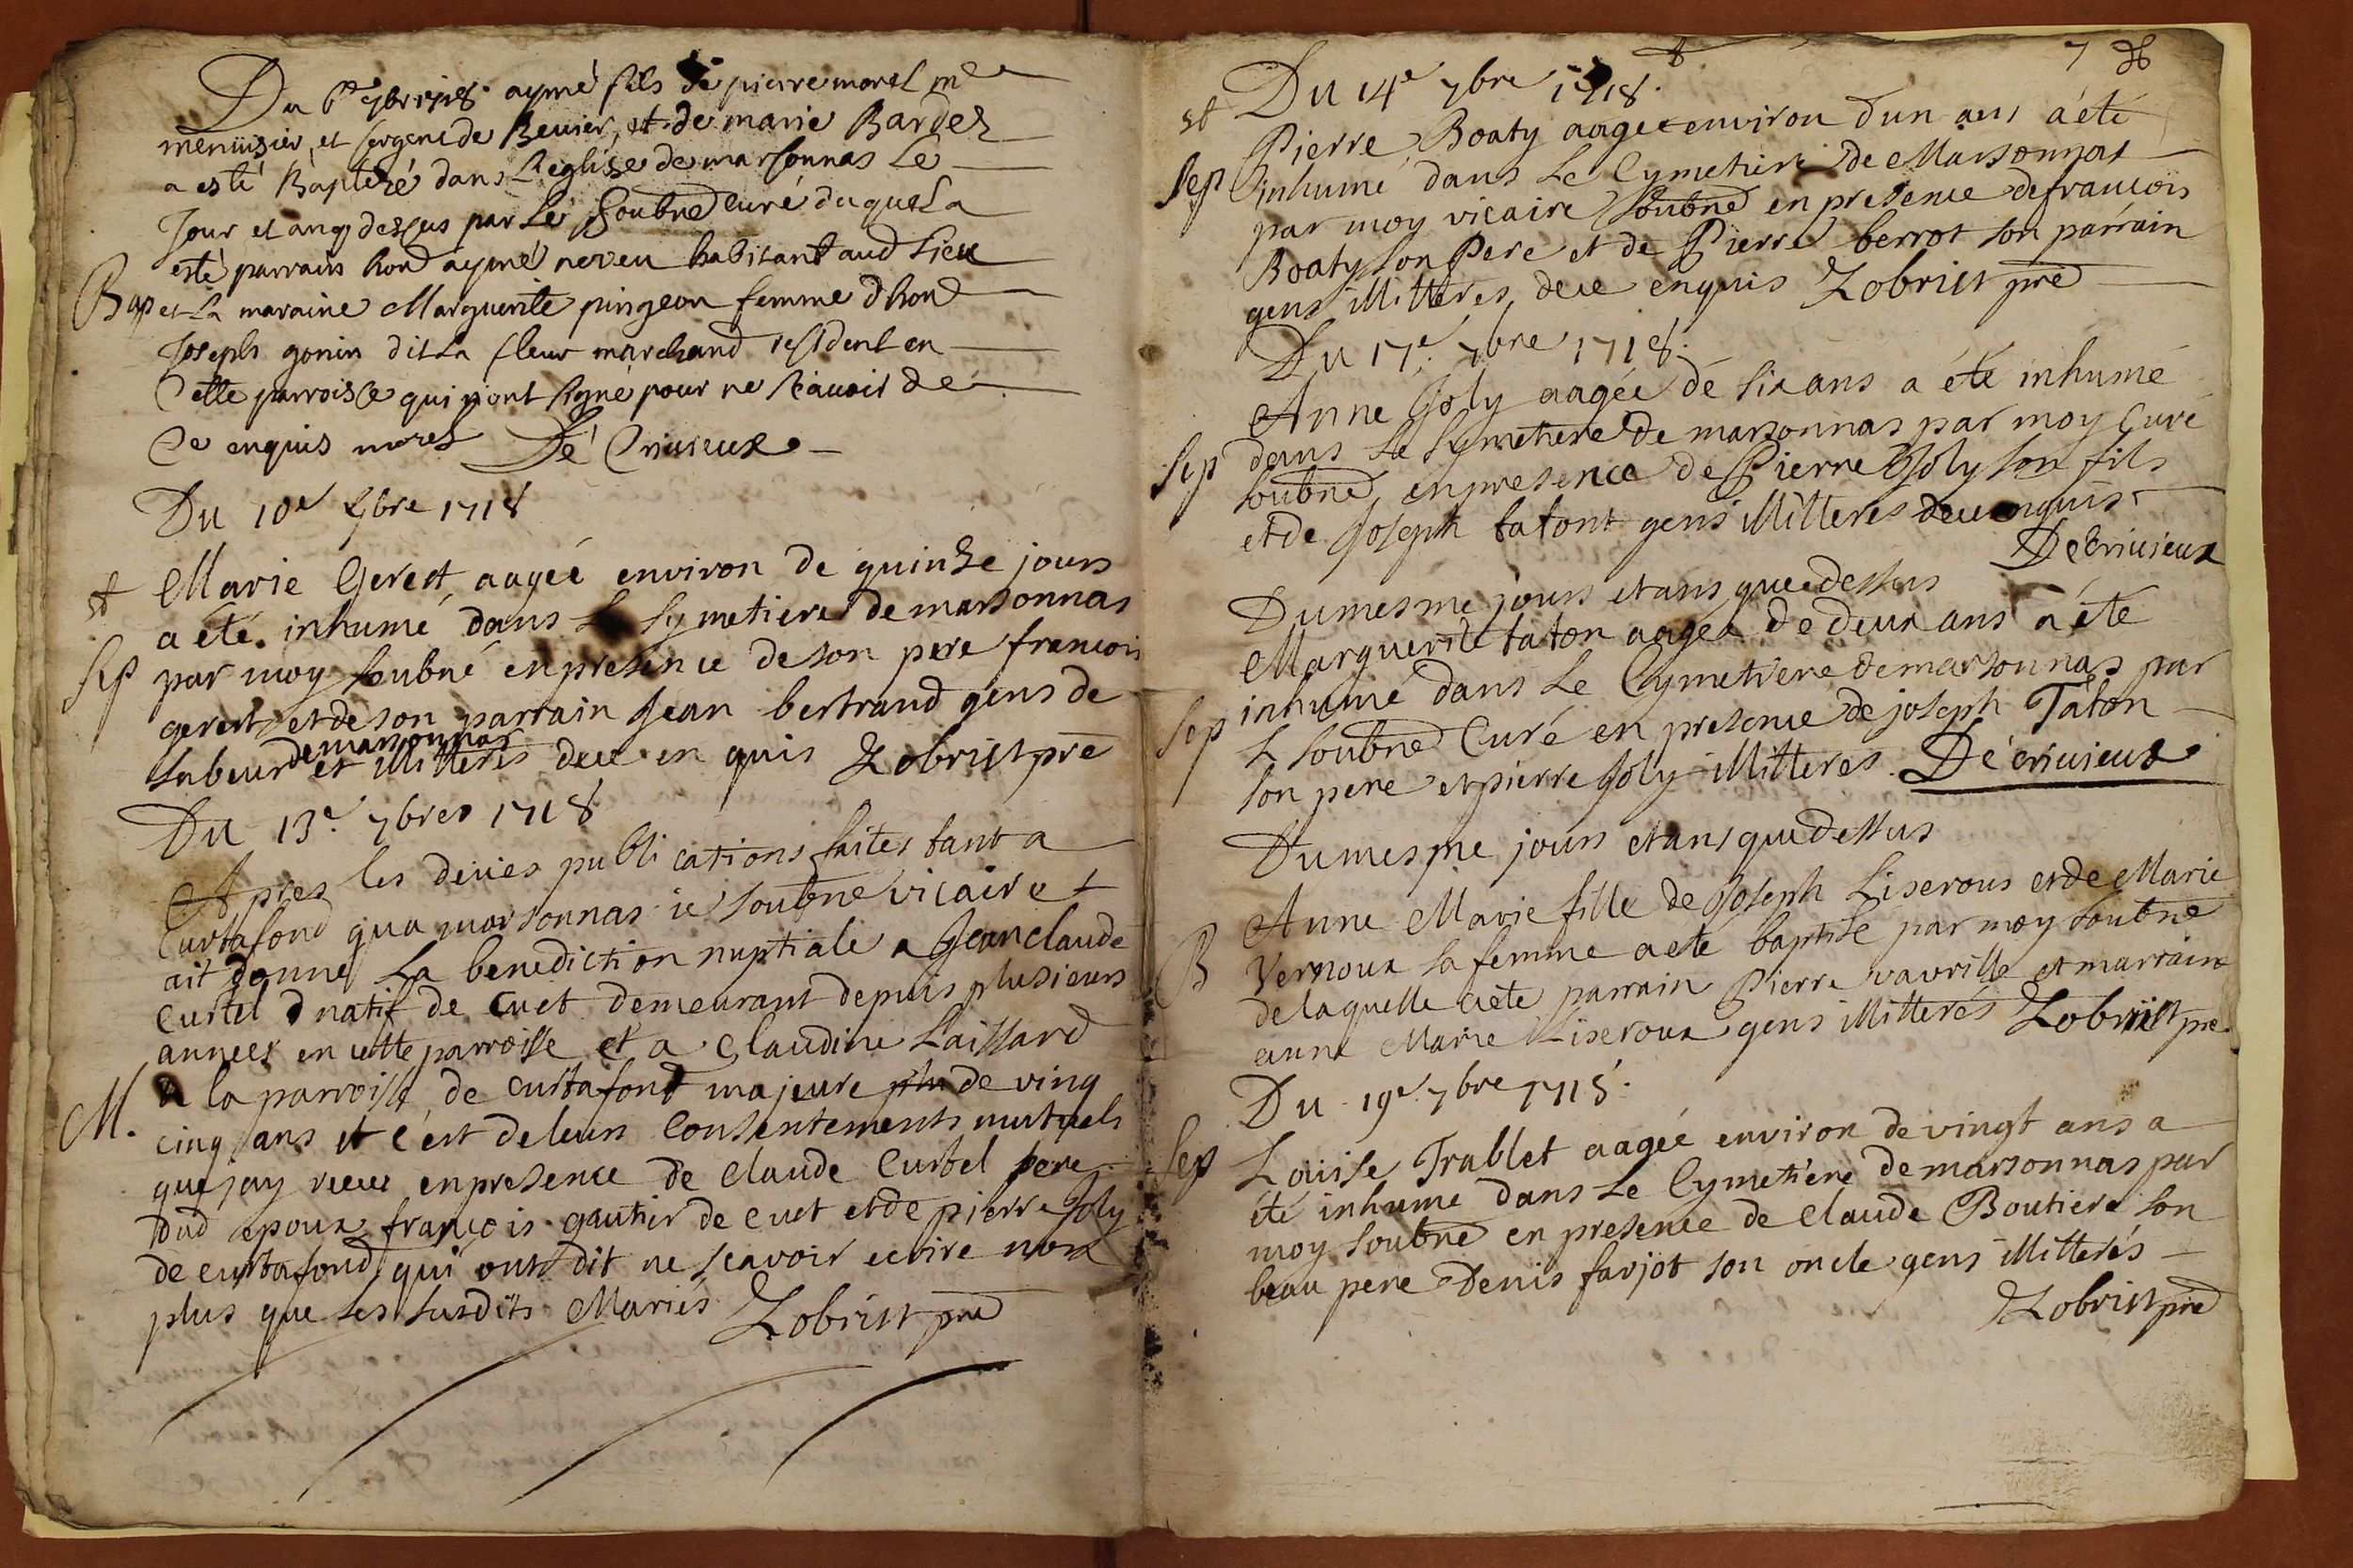 Du 6e 7bre 1718. aymé fils de pierre morel me
menuisier, et sergent de Beuier, et de marie Bardez
a esté Baptezé dans L'eglise de marsonnas Le
Jour et an q dessus par Le Soubné Curé duquel a
esté parrain hond aymé neveu habitant aud Lieu
Bap et La maraine Marguerite pingeon femme d'hond
Joseph gonin dit La fleur marchand resident en
Cette parroisse qui n'ont signé pour ne scavoir de
Ce enquis morel De Criuieux
Du 10e 7bre 1718
st Marie Gerest, aagée environ de quinze jours
a été inhumé dans Le Symetiere de marsonnas
Sep par moy soubné en presence de son pere francois
gerest et de son parrain Jean bertrand gens de
de marsonnas
Labeur et illitterés dece en quis Lobrist pre
Du 13e 7bres 1718
Apres les deües publications faites tant a
Curtafond qu'a marsonnas ie soubné vicaire
ait donné La benediction nuptiale a Jean claude
Curtel natif de Cuet demeurant depuis plusieurs
années en cette parroisse et a Claudine Laissard
M. de la parroisse de curtafond majeure de vinq
cinq ans et c'est de leurs Consentements mutuels
que j'ay receu en presence de Claude Curtel pere
dud epoux françois gautier de Cuet et de pierre Joly
de curtafond qui ont dit ne scavoir ecrire non
plus que les susdits Mariés Lobrist pre
7
Du 14e 7bre 1718.
st Pierre Boaty aagé environ d'un ans a été
Sep inhumé dans Le Cymetiere de Marsonnas
par moy vicaire soubné en presence de francois
Boaty son Pere et de Pierre berrot son parrain
gens illitterés, dece enquis Lobrist pre
Du 17e 7bre 1718.
Anne Joly aagée de six ans a été inhumé
Sep dans Le Symetiere de marsonnas par moy Curé
soubné en presence de Pierre Joly son fils
et de Joseph tatont gens illitterés dece enquis
De Criuieux
Du mesme jours et ans que dessus
Marguerite taton aagée de deux ans a été
inhumé dans Le Cymetiere de marsonnas par
Sep L soubné Curé en presence de joseph Taton
son pere et pierre Joly illitteres De criuieux
Du mesme jours et ans que dessus
Anne Marie fille de Joseph Liserous et de Marie
B Vernoux sa femme a ete baptisé par moy soubné
de laquelle a ete parrain Pierre vavrille et marraine
anne Marie Liseroux gens illitterés Lobrist pre
Du 19e 7bre 1718.
Sep Loüise Trablet aagée environ de vingt ans a
été inhume dans Le Cymetiere de marsonnas par
moy soubné en presence de Claude Boutiere son
beau pere Denis farjot son oncle gens illitterés
Lobrist pre